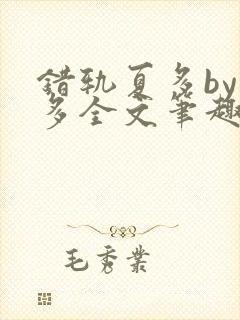 错轨夏多by
多全文笔趣
毛秀業